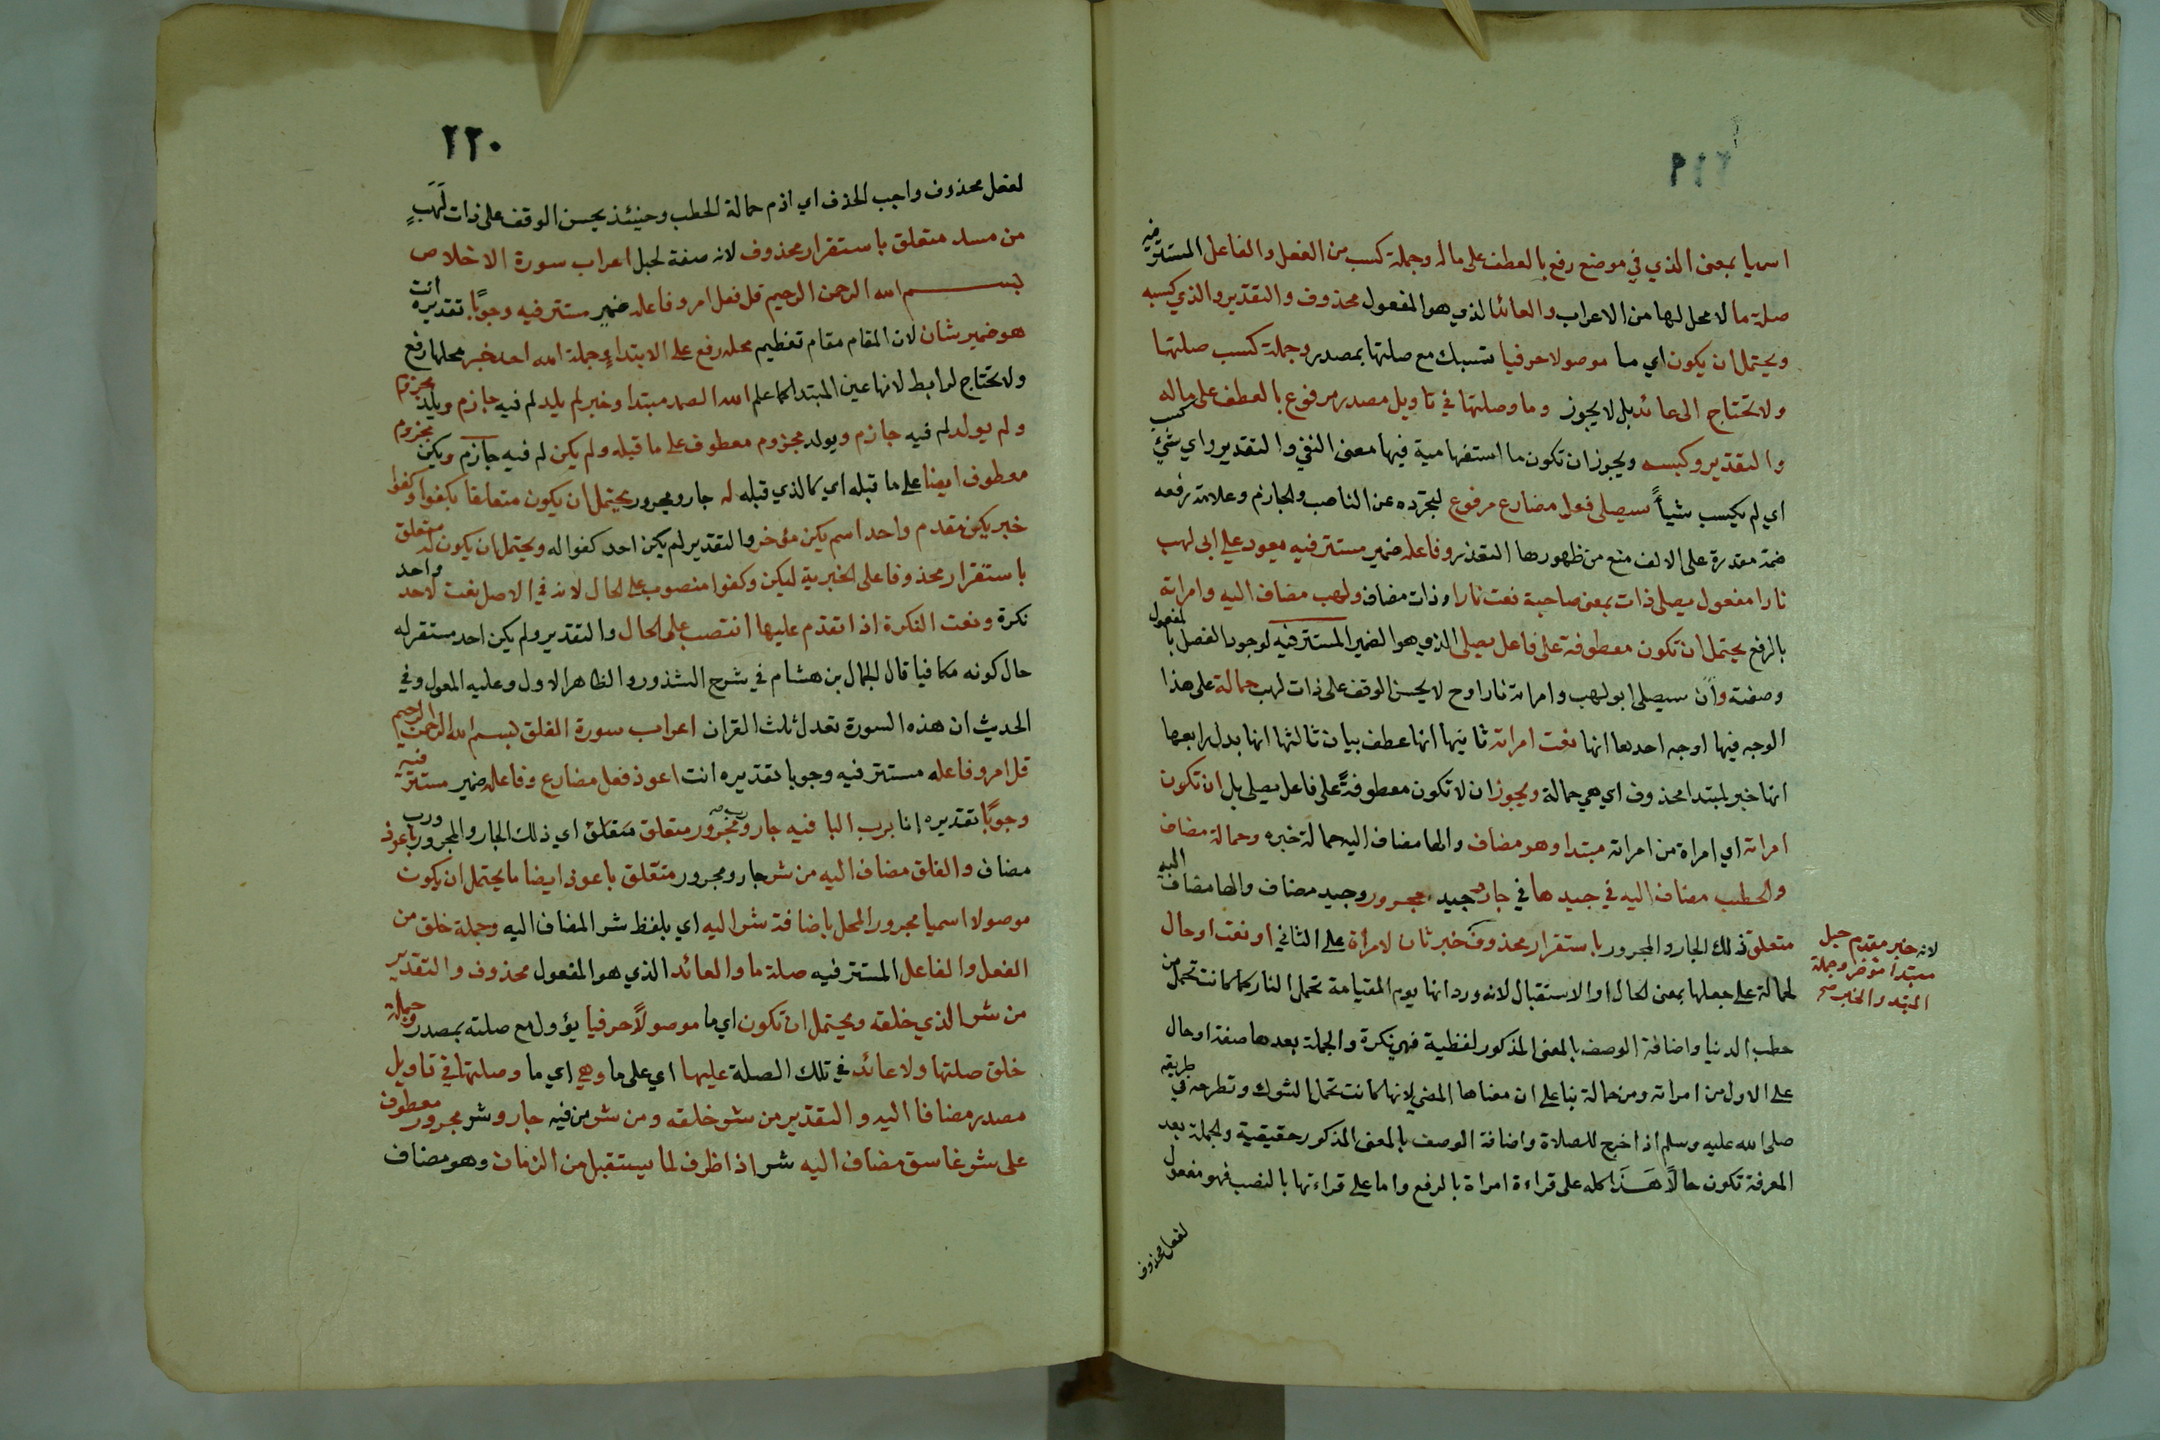 ٢١٩
اسميا بمعنى الذي في موضع رفع بالعطف على ماله وجملة كسب من الفعل والفاعل المستتر فيه
صلة ما لا محل لها من الاعراب والعائد الذي هو المفعول محذوف والتقدير والذي كسبه
ويحتمل ان يكون اي ما موصولا حرفيا تسبك مع صلتها بمصدر وجملة كسب صلتها
ولا تحتاج الى عائد بل لا يجوز وما وصلتها في تاويل مصدر مرفوع بالعطف على ماله
والتقدير وكسبه ويجوز ان تكون ما استفهامية فيها معنى النفي والتقدير واي شئ كسب
اي لم يكسب شيأً سيصلى فعل مضارع مرفوع لتجرده عن الناصب والجازم وعلامة رفعه
ضمة مقدرة على الالف منع من ظهورها التعذر وفاعله ضمير مستتر فيه يعود على ابي لهب
نارا مفعول يصلى ذات بمعنى صاحبة نعت نارا وذات مضاف ولهب مضاف اليه وامراته
بالرفع يحتمل ان تكون معطوفة على فاعل يصلى الذي هو الضمير المستتر فيه لوجود الفصل بالمفعول
وصفته وان سيصلى ابو لهب وامراته نارا وح لا يحسن الوقف على ذات لهب حمالة على هذا
الوجه فيها اوجه احدها انها نعت امراته ثانيها انها عطف بيان ثالثها انها بدل رابعها
انها خبر لمبتدا محذوف اي هي حمالة ويجوز ان لا تكون معطوفة على فاعل يصلى بل ان تكون
امراته اي امراة من امراته مبتدا وهو مضاف والها مضاف اليه حمالة خبره وحمالة مضاف
والحطب مضاف اليه في جيدها في جار وجيد مجرور وجيد مضاف والها مضاف اليه
متعلق ذلك الجار والمجرور باستقرار محذوف خبر ثان لامراة على الثاني او نعت او حال
لحمالة على جعلها بمعنى الحال او الاستقبال لانه ورد انها يوم القيامة تحمل النار كما كانت تحمل من
حطب الدنيا واضافة الوصف بالمعنى المذكور لفظية فهي نكرة والجملة بعدها صفة او حال
على الاول من امراته ومن حمالة بنا على ان معناها المضي لانها كانت تحمل الشوك وتطرحه في طريقه
صلى الله عليه وسلم اذا خرج للصلاة واضافة الوصف بالمعنى المذكور حقيقية والجملة بعد
المعرفة تكون حالاً هَذا كله على قراءة امراة بالرفع واما على قراءتها بالنصب فهو مفعول
لفعل محذوف
لانه خبر مقدم حبل
مبتدا مؤخر وجملة
المبتدا والخبر صح
٢٢٠
لفعل محذوف واجب الحذف اي اذم حمالة الحطب وحينئذ يحسن الوقف على ذات لَهَبٍ
من مسد متعلق باستقرار محذوف لانه صفة لحبل اعراب سورة الاخلاص
بســـــــم الله الرحمن الرحيم قل فعل امر وفاعله ضمير مستتر فيه وجوبًا تقديره انت
هو ضمير شان لان المقام مقام تعظيم محله رفع على الابتداء جملة الله احد خبر محلها رفع
ولا تحتاج لرابط لانها عين المبتدا كما علم الله الصمد مبتدا وخبر لم يلد لم فيه جازم ويلد مجزوم
ولم يولد لم فيه جازم ويولد مجزوم معطوف على ما قبله ولم يكن لم فيه جازم ويكن مجزوم
معطوف ايضا على ما قبله اي كالذي قبله له جار ومجرور يحتمل ان يكون متعلقا بكفوا وكفوا
خبر يكن مقدم واحد اسم يكن مؤخر والتقدير لم يكن احد كفوا له ويحتمل ان يكون له متعلق
باستقرار محذوفا على الخبرية ليكن وكفوا منصوب على الحال لانه في الاصل نعت لاحد واحد
نكرة ونعت النكرة اذا تقدم عليها انتصب على الحال والتقدير ولم يكن احد مستقر له
حال كونه مكافيا قال الجمال بن هشام في شرح الشذور والظاهر الاول وعليه المعول وفي
الحديث ان هذه السورة تعدل ثلث القران اعراب سورة الفلق بسم الله الرحمن الرحيم
قل امر وفاعله مستتر فيه وجوبا تقديره انت اعوذ فعل مضارع وفاعله ضمير مستتر فيه
وجوبًا تقديره انا برب البا فيه جار ورب مجرور متعلق متعلق اي ذلك الجار والمجرور باعوذ ورب
مضاف والفلق مضاف اليه من شر جار ومجرور متعلق باعوذ ايضا ما يحتمل ان يكون
موصولا اسميا مجرور المحل باضافة شر اليه اي بلفظ شر المضاف اليه وجملة خلق من
الفعل والفاعل المستتر فيه صلة ما والعائد الذي هو المفعول محذوف والتقدير
من شر الذي خلقه ويحتمل ان تكون اي ما موصولاً حرفيا يؤول مع صلته بمصدر وجملة
خلق صلتها ولا عائد في تلك الصلة عليها اي على ما وهي اي ما وصلتها في تاويل
مصدر مضافا اليه والتقدير من شر خلقه ومن شر من فيه جار وشر مجرور معطوف
على شر غاسق مضاف اليه شر اذا ظرف لما يستقبل من الزمان وهو مضاف